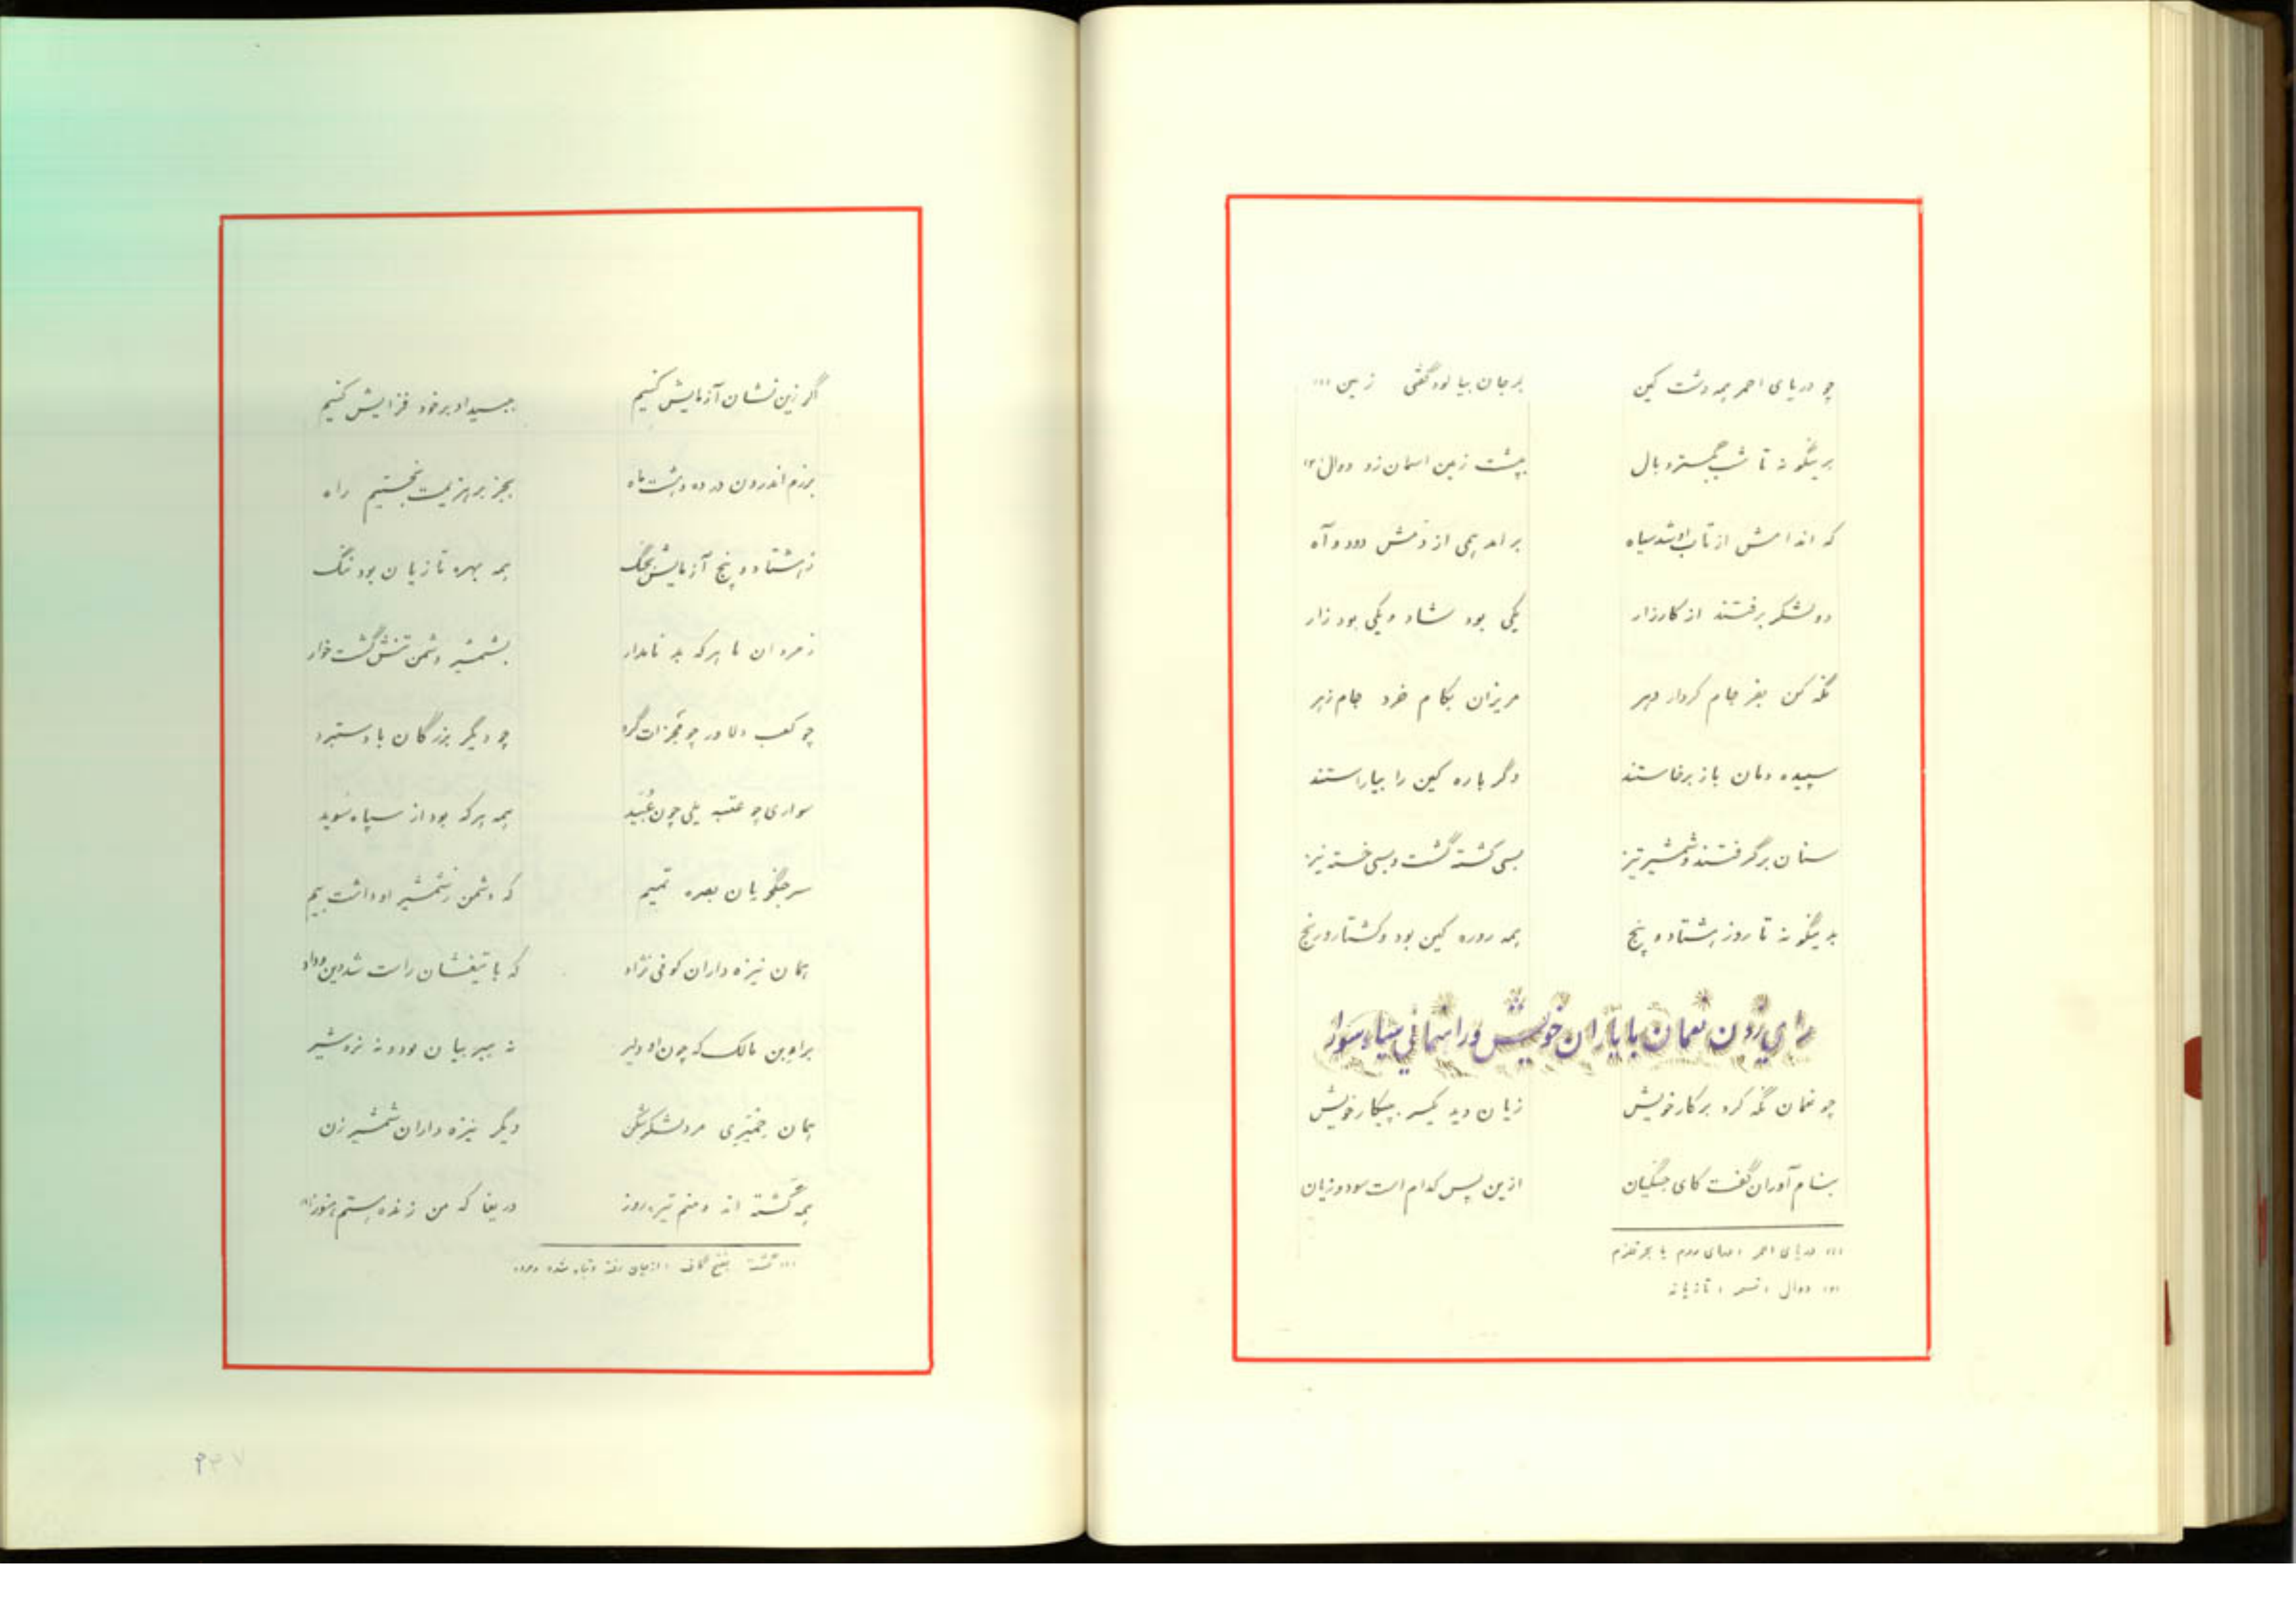 چو دریای احمر همه دشت کین بمرجان بیالود گفتی زمین (۱)
برینگونه تا شب بگسترد بال بپشت زمین اسمان زد دوال (۲)
که اندامش از تاب او شد سیاه برامد همی از دمش دود و آه
دو لشکر برفتند از کارزار یکی بود شاد و یکی بود زار
نگه کن بفرجام کردار دهر مریزان بکام خرد جام زهر
سپیده دمان باز برخاستند دگر باره کین را بیاراستند
سنان برگرفتند و شمشیر تیز بسی کشته گشت و بسی خسته نیز
بدینگونه تا روز هشتاد و پنج همه روزه کین بود و کشتار و رنج
رای زدن نعمان با یاران خویش و راهنمائی سیاه سوار
چو نعمان نگه کرد بر کار خویش زیان دید یکسر بپیکار خویش
بنام آوران گفت کای جنگیان ازین پس کدام است سود و زیان
(۱) دریای احمر : دریای روم یا بحر قلزم
(۲) دوال : تسمه ، تازیانه
اگر زین نشان آزمایش کنیم ببیداد بر خود فزایش کنیم
برزم اندرون در ده و هشت ماه بجز بر هزیمت نجستیم راه
ز هشتاد و پنج آزمایش بجنگ همه بهره تازیان بود ننگ
ز مردان ما هر که بد نامدار بشمشیر دشمن تنش گشت خوار
چو کعب دلاور چو گرد چو دیگر بزرگان با دستبرد
سواری چو عتبه یلی چون عُبَید همه هر که بود از سپاه
سر جنگجویان بصره تمیم که دشمن ز شمشیر او داشت بیم
همان نیزه داران کوفی نژاد که با تیغشان راست شد دین و داد
براو بن مالک که چون او دلیر نه ببر بیان بود و نه نره شیر
همان مرد لشکرشکن دیگر نیزه داران شمشیر زن
همه گَشته اند و منم تیره روز دریغا که من زنده هستم هنوز (۱)
(۱) گشته بفتح گاف : از میان رفته و تباه شده و مرده
۴۳۷